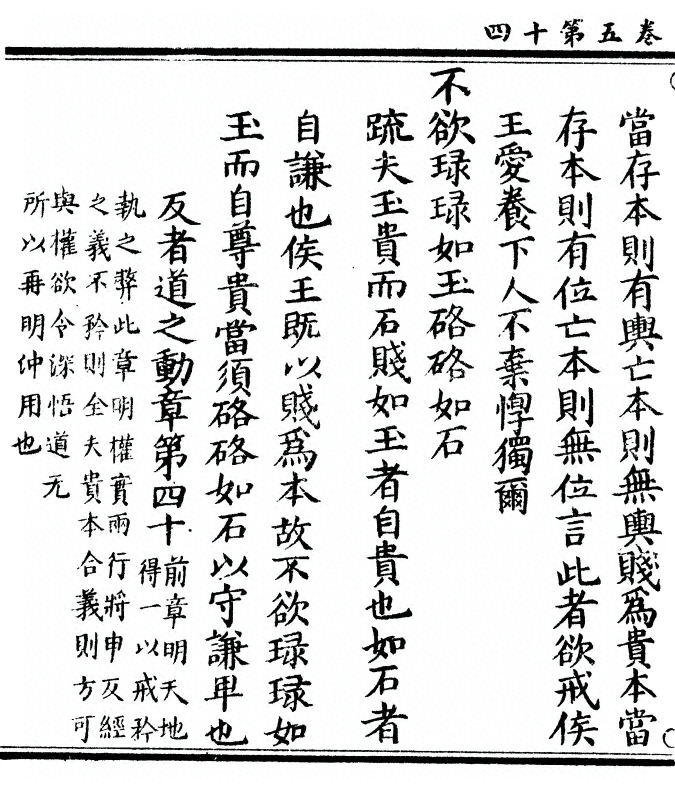 卷五第十四
當存本則有輿亡本則無輿賤爲貴本當
存本則有位亡本則無位言此者欲戒侯
王愛養下人不棄惸獨爾
不欲琭琭如玉硌硌如石
疏夫玉貴而石賤如玉者自貴也如石者
自謙也侯王既以賤爲本故不欲琭琭如
玉而自尊貴當須硌硌如石以守謙卑也
反者道之動章第四十
前章明天地
得一以戒矜
執之弊此章明權實兩行將申反經
之義不矜則全夫貴本合義則方可
與權欲令深悟道无
所以再明仲用也